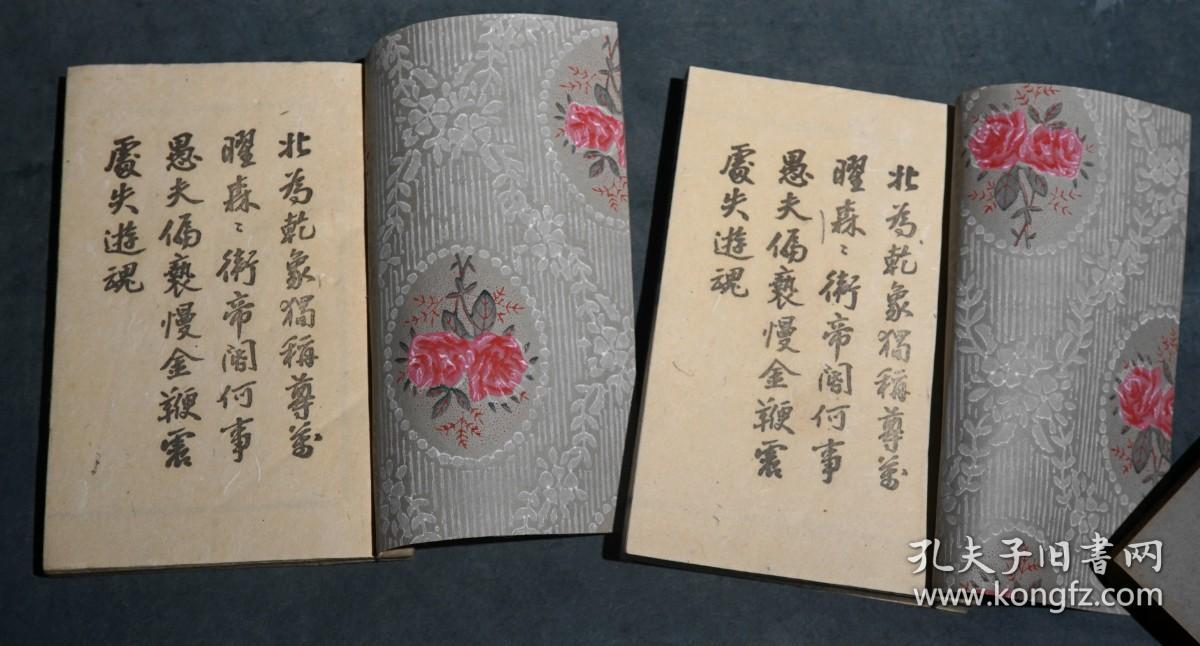 北為乾象獨稱尊萬
曜森〻衛帝閽何事
愚夫偏褻慢金鞭震
處失遊魂
北為乾象獨稱尊萬
曜森〻衛帝閽何事
愚夫偏褻慢金鞭震
處失遊魂
孔夫子旧书网
www.kongfz.com